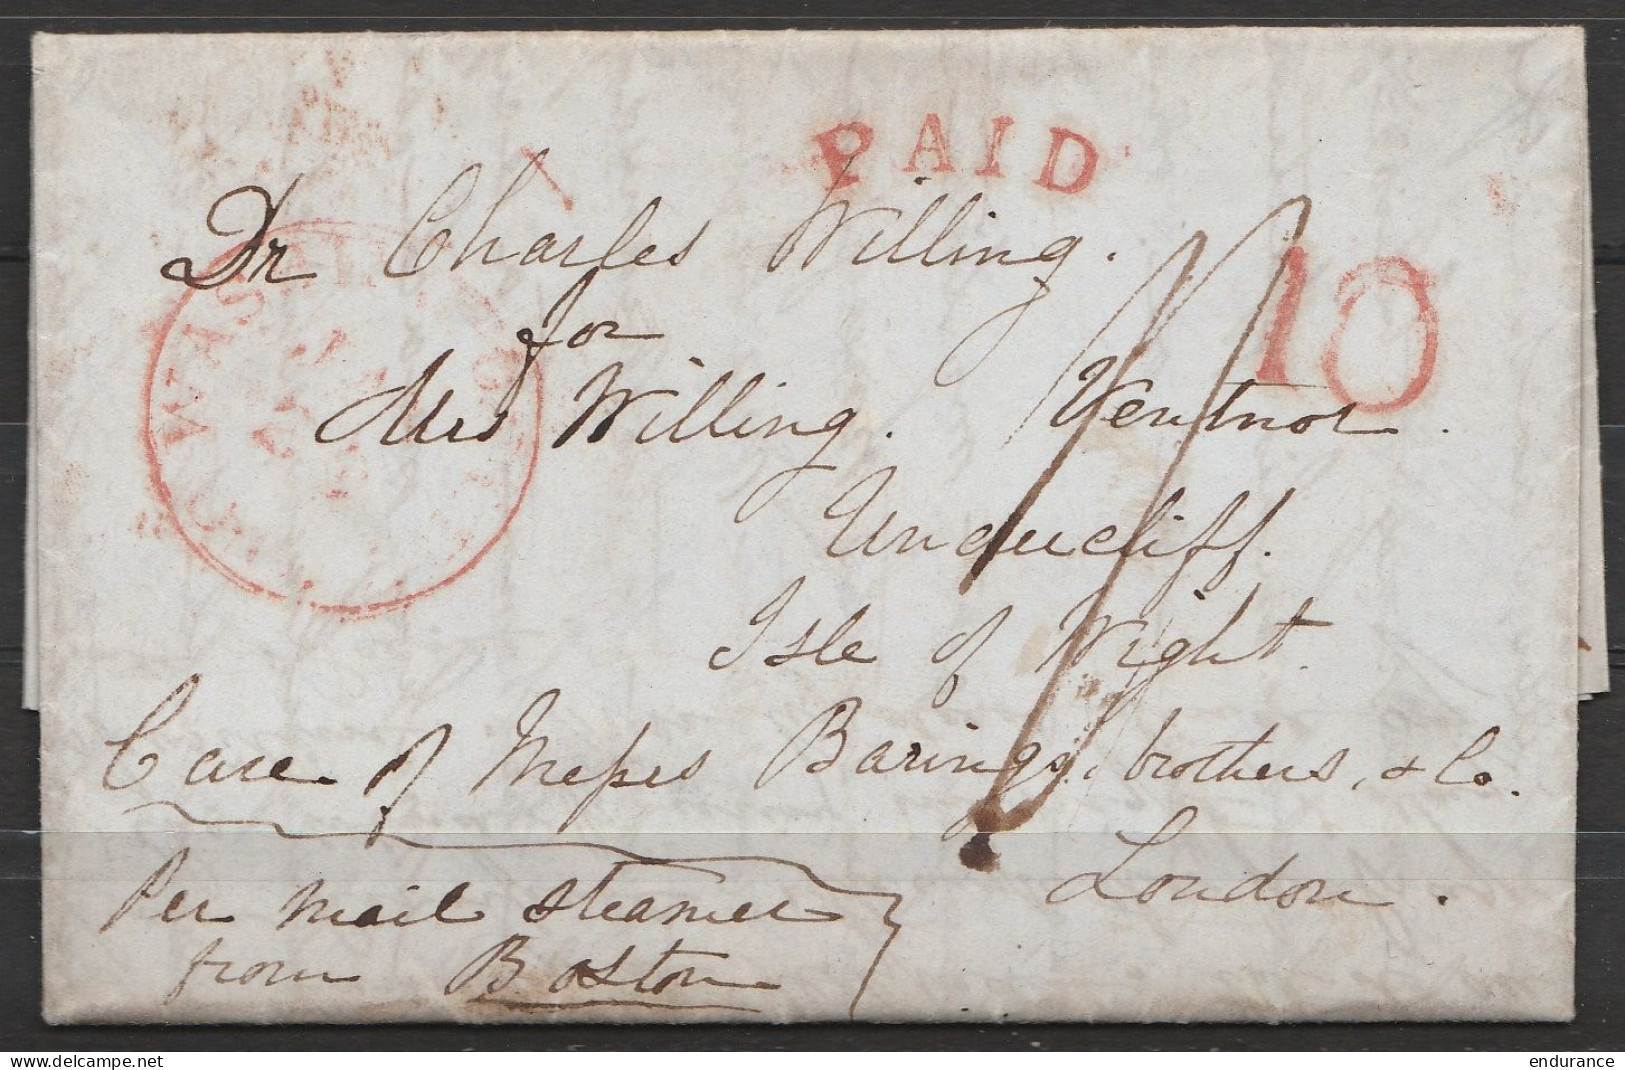 PAID
Dr Charles Willing.
10
for
Mrs Willing. Ventnor.
Undercliff.
Isle of Wight.
Care of Messrs Barings, brothers, & Co.
London.
Per mail steamer
from Boston
endurance